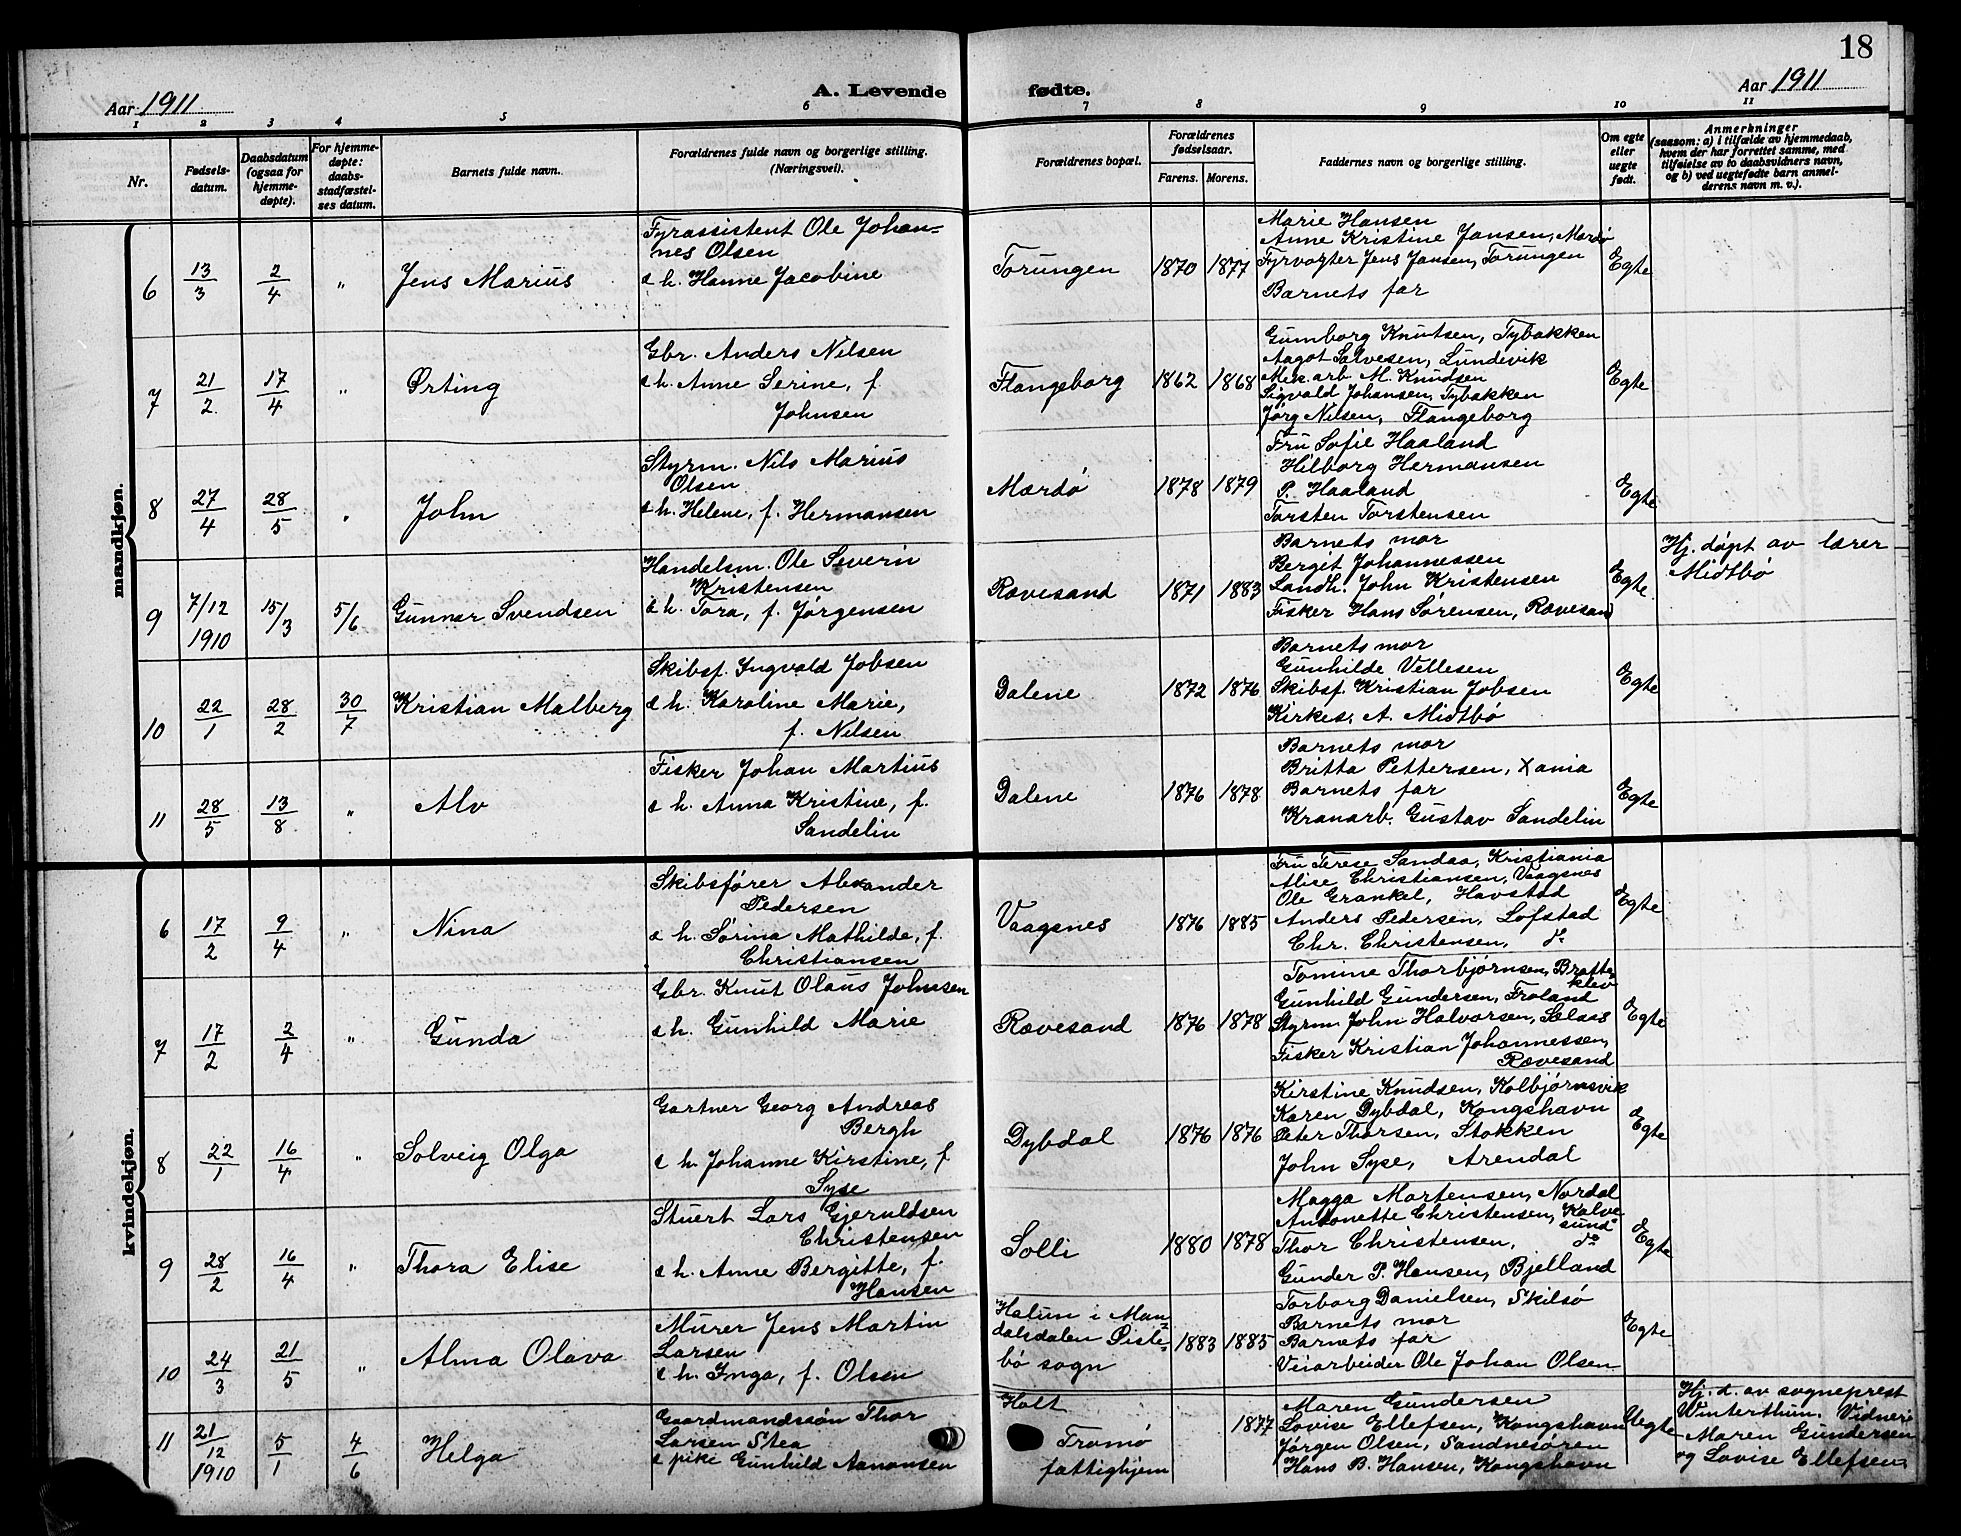 18
Aar 1911
A. Levende
fødte.
Aar 1911
1 2 3 4 5 6 7 8 9 10 11
Nr.
Fødsels-
datum.
Daabsdatum
(ogsaa for
hjemme-
døpte).
For hjemme-
døpte:
daabs-
stadfæstel-
ses datum.
Barnets fulde navn.
Forældrenes fulde navn og borgerlige stilling.
(Næringsvei).
Forældrenes bopæl.
Forældrenes
fødselsaar.
Farens. Morens.
Faddernes navn og borgerlige stilling.
Om egte
eller
uegte
født.
Anmerkninger
(saasom: a) i tilfælde av hjemmedaab,
hvem der har forrettet samme, med
tilføielse av to daabsvidners navn,
og b) ved uegtefødte barn anmel-
derens navn m. v.).
mandkjøn.
6 13/3 2/4 " Jens Marius
Fyrassistent Ole Johan-
nes Olsen
& h. Hanne Jacobine
Torungen 1870 1877
Marie Hansen
Anne Kristine Jansen, Mærdø
Fyrvogter Jens Jansen, Torungen
Barnets far
Egte
7 21/2 17/4 " Ørting
Gbr. Anders Nilsen
& h. Anne Serine, f.
Johnsen
Flangeborg 1862 1868
Gumborg Knutsen, Tybakken
Aagot Salvesen, Lundevik
Mek. arb M. Knudsen
Sigvald Johansen, Tybakken
Jørg Nilsen, Flangeborg
Egte
8 27/4 28/5 " John
Styrm. Nils Marius
Olsen
& h. Helene, f. Hermansen
Mærdø 1878 1879
Fru Sofie Haaland
Hilborg Hermansen
P. Haaland
Torsten Torstensen
Egte
9 7/12 1910 15/3 5/6 Gunnar Svendsen
Handelsm. Ole Severin
Kristensen
& h. Tora, f. Jørgensen
Rævesand 1871 1883
Barnets mor
Bergit Johannessen
Landh. John Kristensen
Fisker Hans Sørensen, Rævesand
Egte
Hj. døpt av lærer
Midtbø
10 22/1 28/2 30/7 Kristian Malberg
Skibsf. Ingvald Jobsen
& h. Karoline Marie,
f. Nilsen
Dalene 1872 1876
Barnets mor
Gunhilde Vellesen
Skibsf. Kristian Jobsen
Kirkes. A. Midtbø
Egte
11 28/5 13/8 " Alv
Fisker Johan Martius
& h. Anna Kristine, f.
Sandelin
Dalene 1876 1878
Barnets mor
Britta Pettersen, Xania
Barnets far
Kranarb. Gustav Sandelin
Egte
kvindekjøn.
6 17/2 9/4 " Nina
Skibsfører Alexander
Pedersen
& h. Sørina Mathilde, f.
Christiansen
Vaagsnes 1876 1885
Fru Terese Sandaa, Kristiania
Alise Christiansen, Vaagsnes
Ole Grankel, Havstad
Anders Pedersen, Løfstad
Chr. Christensen, do
Egte
7 17/2 2/4 " Gunda
Gbr. Knut Olaus Johnsen
& h. Gunhild Marie
Rævesand 1876 1878
Tomine Thorbjørnsen, Bratte-
klev
Gunhild Gundersen, Froland
Styrm John Halvorsen, Salaas
Fisker Kristian Johannessen,
Rævesand
Egte
8 22/1 16/4 " Solveig Olga
Gartner Georg Andreas
Bergh
& h. Johanne Kirstine, f
Syse
Dybdal 1876 1876
Kirstine Knudsen, Kolbjørnsvik
Karen Dybdal, Kongshavn
Peter Thorsen, Stokken
John Syse, Arendal
Egte
9 28/2 16/4 " Thora Elise
Stuert Lars Gjeruldsen
Christensen
& h. Anne Bergitte, f.
Hansen
Solli 1880 1878
Magga Mortensen, Nordal
Antonette Christensen, Kalve
sund
Thor Christensen, do
Gunder P. Hansen, Bjelland
Egte
10 24/3 21/5 " Alma Olava
Murer Jens Martin
Larsen
& h. Inga, f. Olsen
Halum i Man-
dalsdalen Siste-
bø sogn
1883 1885
Torborg Danielsen, Skilsø
Barnets mor
Barnets far
Veiarbeider Ole Johan Olsen
Egte
11 21/12 1910 5/1 4/6 Helga
Gaardmandssøn Thor
Larsen Stea
& pike Gunhild Aanonsen
Holt
Tromø
fattighjem
1877
Maren Gundersen
Lovise Ellefsen, Kongshavn
Jørgen Olsen, Sandnesøren
Hans B. Hansen, Kongshavn
Uegte
Hj. d. av sogneprest
Winterthun. Vidner:
Maren Gundersen
og Lovise Ellefsen